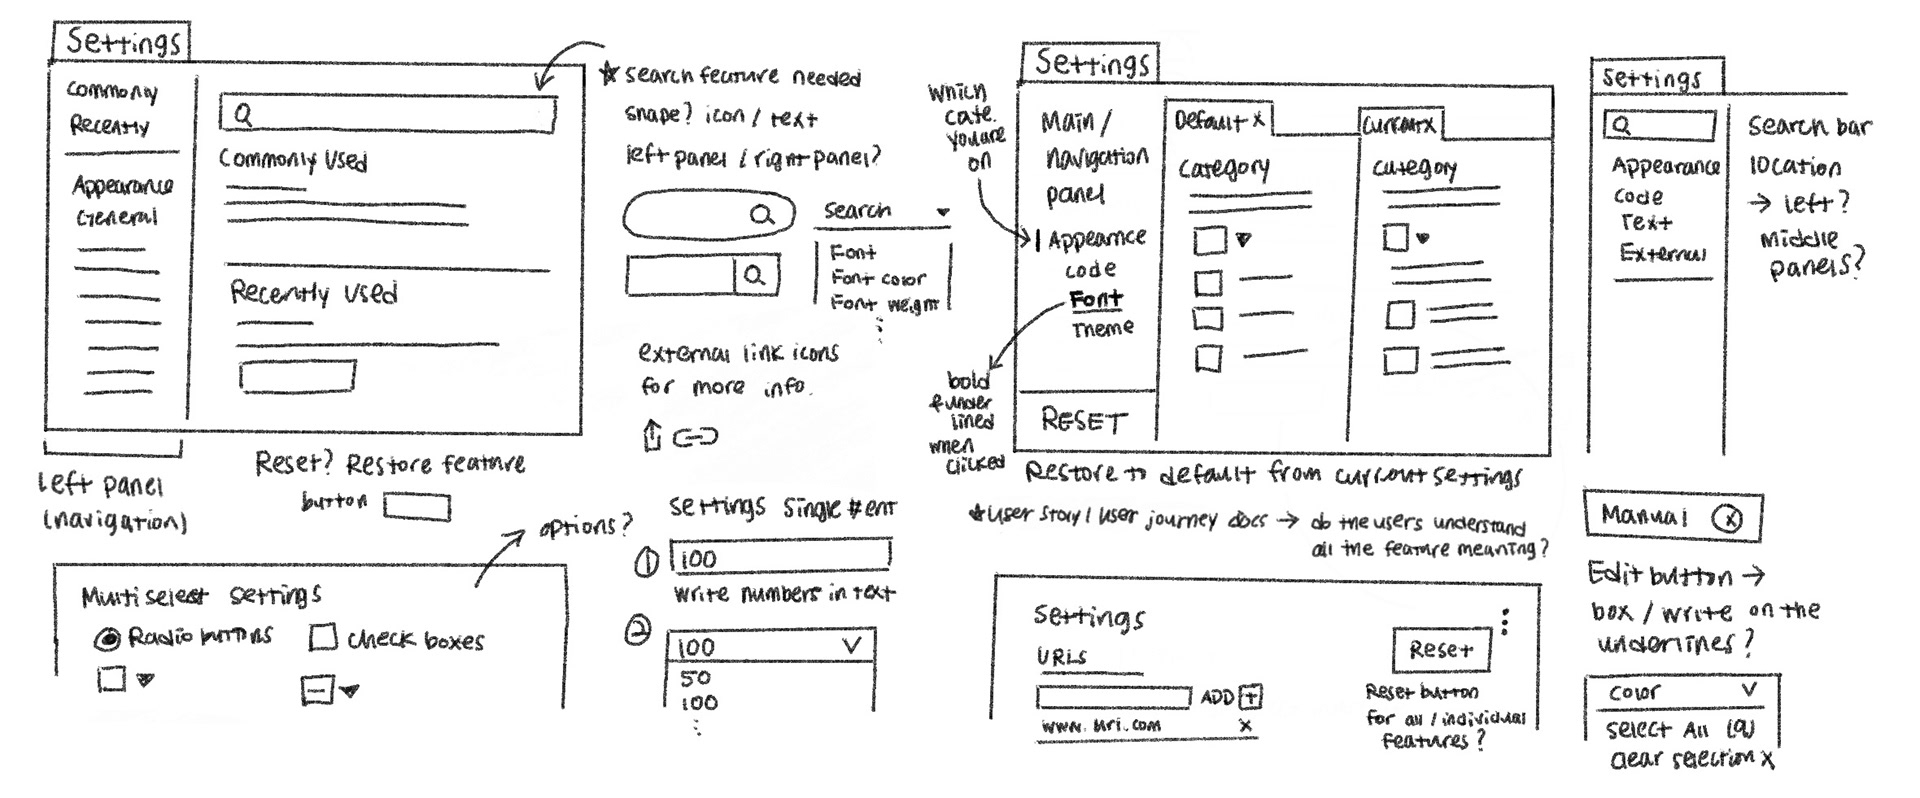 Settings
Commonly
Recently
Appearance
General
Commonly Used
Recently Used
Left panel
(navigation)
Reset? Restore feature
button
★ search feature needed
shape? icon / text
left panel / right panel?
Search
Font
Font color
Font weight
external link icons
for more info.
options?
Multiselect settings
Radio buttons
check boxes
settings single # ent
① 100
write numbers in text
② 100
50
100
which
cate.
you are
on
Settings
Main /
navigation
panel
Appearnce
code
Font
Theme
RESET
Default x
Category
Current x
Category
bold
& under
lined
when
clicked
Restore to default from current settings
★ User story / user journey docs → do the users understand
all the feature meaning?
Settings
URLs
ADD +
x
Reset
Reset button
for all / individual
features?
Settings
Appearance
Code
Text
External
search bar
location
→ left?
Middle
panels?
Manual x
Edit button →
box / write on the
underlines?
Color
Select All (9)
clear selection x